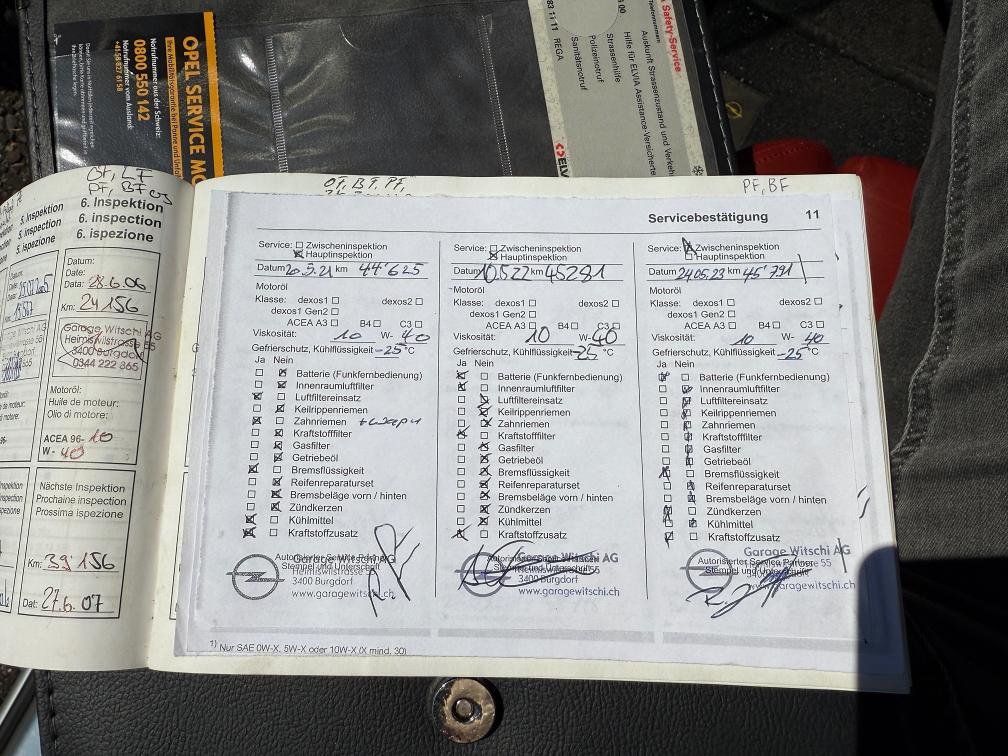 OPEL SERVICE MO
Notrufnummer aus der Schweiz:
0800 550 142
Notrufnummer vom Ausland:
Safety-Service
Auskunft Strassenzustand und Verkehr
Hilfe für ELVIA Assistance-Versicherte
Strassenhilfe
Polizeinotruf
Sanitätsnotruf
REGA
ELV
OF, LF
PF, BF
5. Inspektion
5. inspection
5. ispezione
6. Inspektion
6. inspection
6. ispezione
Datum:
Date:
Data: 28.6.06
Km: 24 156
Garage Witschi AG
Heimiswilstrasse 55
3400 Burgdorf
0344 222 865
Motoröl:
Huile de moteur:
Olio di motore:
ACEA 96- 10
W - 40
Nächste Inspektion
Prochaine inspection
Prossima ispezione
Km: 39 156
Dat: 27.6.07
OF, BF, PF,
PF, BF
Servicebestätigung 11
Service: Zwischeninspektion
Hauptinspektion
Datum 20.5.21 km 44'625
Motoröl
Klasse: dexos1 dexos2
dexos1 Gen2
ACEA A3 B4 C3
Viskosität: 10 W- 40
Gefrierschutz, Kühlflüssigkeit -25 °C
Ja Nein
Batterie (Funkfernbedienung)
Innenraumluftfilter
Luftfiltereinsatz
Keilrippenriemen
Zahnriemen + wapu
Kraftstofffilter
Gasfilter
Getriebeöl
Bremsflüssigkeit
Reifenreparaturset
Bremsbeläge vorn / hinten
Zündkerzen
Kühlmittel
Kraftstoffzusatz
Autorisierter Service Partner
Stempel und Unterschrift
Garage Witschi AG
Heimiswilstrasse 55
3400 Burgdorf
www.garagewitschi.ch
Service: Zwischeninspektion
Hauptinspektion
Datum 10.5.22 km 45281
Motoröl
Klasse: dexos1 dexos2
dexos1 Gen2
ACEA A3 B4 C3
Viskosität: 10 W- 40
Gefrierschutz, Kühlflüssigkeit -25 °C
Ja Nein
Batterie (Funkfernbedienung)
Innenraumluftfilter
Luftfiltereinsatz
Keilrippenriemen
Zahnriemen
Kraftstofffilter
Gasfilter
Getriebeöl
Bremsflüssigkeit
Reifenreparaturset
Bremsbeläge vorn / hinten
Zündkerzen
Kühlmittel
Kraftstoffzusatz
Autorisierter Service Partner
Stempel und Unterschrift
Garage Witschi AG
Heimiswilstrasse 55
3400 Burgdorf
www.garagewitschi.ch
Service: Zwischeninspektion
Hauptinspektion
Datum 24.05.23 km 45'791
Motoröl
Klasse: dexos1 dexos2
dexos1 Gen2
ACEA A3 B4 C3
Viskosität: 10 W- 40
Gefrierschutz, Kühlflüssigkeit -25 °C
Ja Nein
Batterie (Funkfernbedienung)
Innenraumluftfilter
Luftfiltereinsatz
Keilrippenriemen
Zahnriemen
Kraftstofffilter
Gasfilter
Getriebeöl
Bremsflüssigkeit
Reifenreparaturset
Bremsbeläge vorn / hinten
Zündkerzen
Kühlmittel
Kraftstoffzusatz
Garage Witschi AG
Autorisierter Service Partner
Stempel und Unterschrift
www.garagewitschi.ch
1) Nur SAE 0W-X, 5W-X oder 10W-X (X mind. 30)